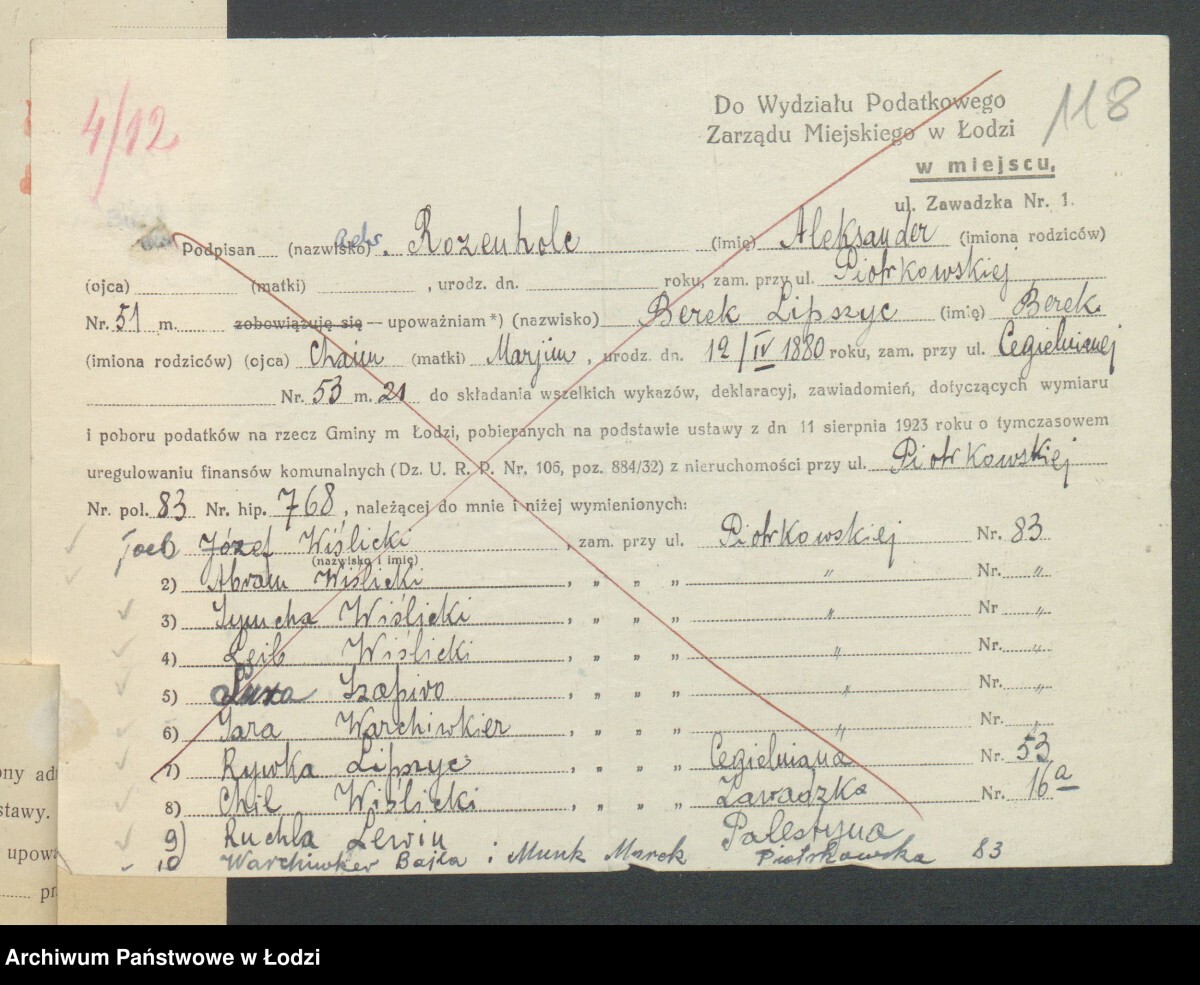 4/12
118
Do Wydziału Podatkowego
Zarządu Miejskiego w Łodzi
w miejscu,
ul. Zawadzka Nr. 1.
Podpisan (nazwisko) Rozenholc (imię) Aleksander (imiona rodziców)
(ojca) (matki) , urodz. dn. roku, zam. przy ul. Piotrkowskiej
Nr. 51 m. zobowiązuję się — upoważniam *) (nazwisko) Berek Lipszyc (imię) Berek
(imiona rodziców) (ojca) Chaim (matki) Marjim , urodz. dn. 12/IV 1880 roku, zam. przy ul. Cegielnianej
Nr. 53 m. 21 do składania wszelkich wykazów, deklaracyj, zawiadomień, dotyczących wymiaru
i poboru podatków na rzecz Gminy m Łodzi, pobieranych na podstawie ustawy z dn 11 sierpnia 1923 roku o tymczasowem
uregulowaniu finansów komunalnych (Dz. U. R. P. Nr. 106, poz. 884/32) z nieruchomości przy ul. Piotrkowskiej
Nr. pol. 83 Nr. hip. 768 , należącej do mnie i niżej wymienionych:
Józef Wiślicki , zam. przy ul. Piotrkowskiej Nr. 83
(nazwisko i imię)
2) Abram Wiślicki , „ „ „ „ Nr. „
3) Symcha Wiślicki , „ „ „ „ Nr „
4) Lejb Wiślicki , „ „ „ „ Nr. „
5) Szapiro , „ „ „ „ Nr. „
6) Sara Warchiwkier „ Nr. „
7) Rywka Lipszyc , „ „ „ Cegielniana Nr. 53
8) Chil Wiślicki , „ „ „ Zawadzka Nr. 16a
9) Ruchla Lewin Palestyna
10 Warchiwker Bajla i Munk Marek Piotrkowska 83
ony
stawy.
upowa
pr
Archiwum Państwowe w Łodzi